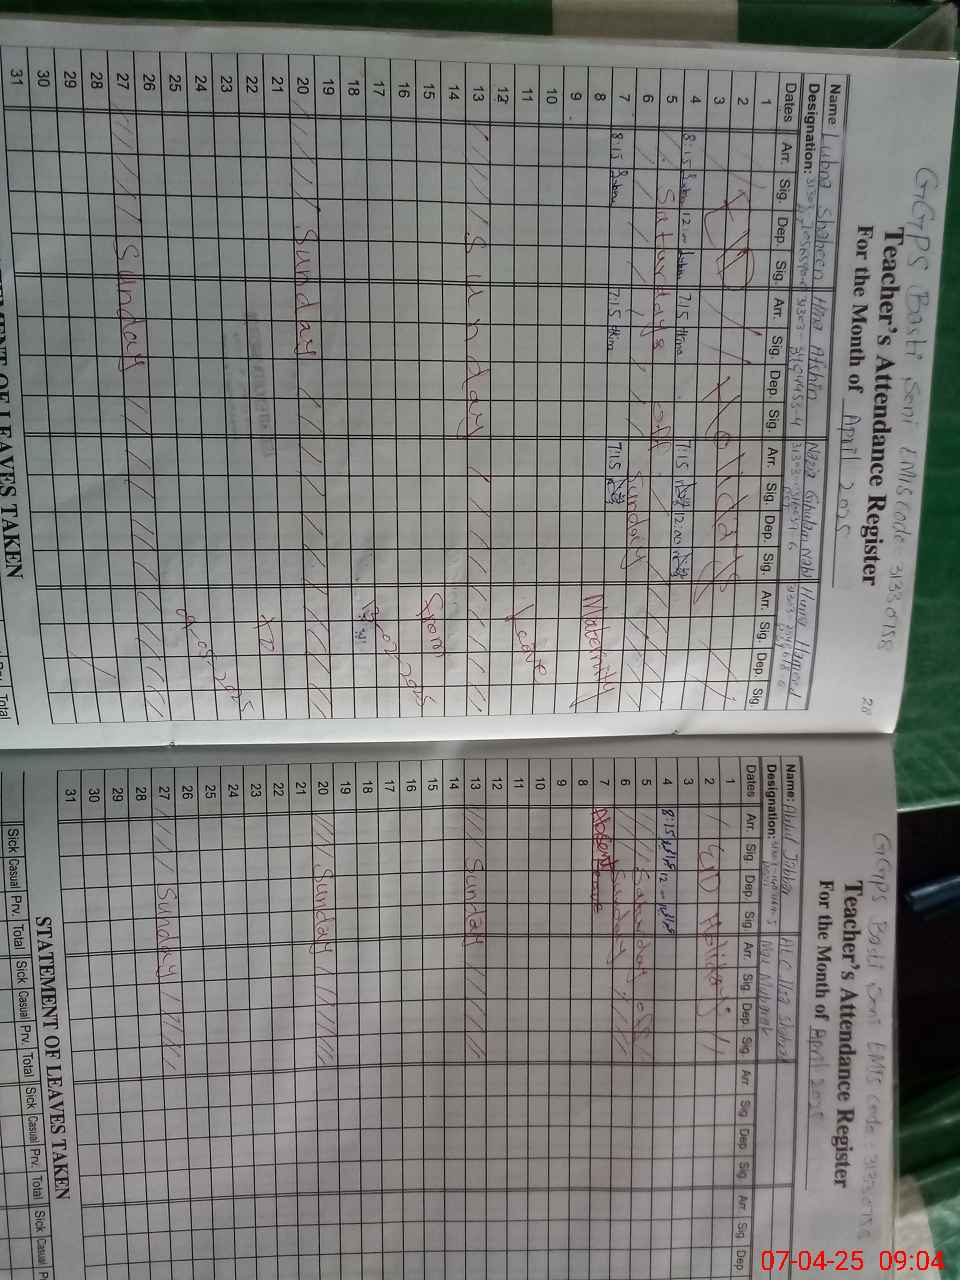 GGPS Basti Soni EMIS code: 31330758
28
Teacher's Attendance Register
For the Month of April 2025
Name: Lubna Shaheen Hina Afshin Nazia Ghulam Nabi Huma Hameed
Designation:
Dates Arr. Sig. Dep. Sig. Arr. Sig. Dep. Sig. Arr. Sig. Dep. Sig. Arr. Sig. Dep. Sig.
1
2 EID Holidays
3
4 8:15 12:00 7:15 Hina 7:15 12:00
5 Saturday off
6 Sunday
7 8:15 7:15 Hina 7:15
8 Maternity
9
10
11 Leave
12
13 Sunday
14
15 From
16
17
18
19
20 Sunday
21
22 to
23
24
25
26
27 Sunday
28
29
30
31
STATEMENT OF LEAVES TAKEN
Total
GGPS Basti Soni EMIS code: 31330758
Teacher's Attendance Register
For the Month of April 2025
Name: Abdul Jabbar
Designation:
Dates Arr. Sig. Dep. Sig. Arr. Sig. Dep. Sig. Arr. Sig. Dep. Sig. Arr. Sig. Dep
1
2 EID Holidays
3
4 8:15 12
5 Saturday off
6 Sunday
7 Absent
8
9
10
11
12
13 Sunday
14
15
16
17
18
19
20 Sunday
21
22
23
24
25
26
27 Sunday
28
29
30
31
STATEMENT OF LEAVES TAKEN
Sick Casual Prv. Total Sick Casual Prv. Total Sick Casual Prv. Total Sick Casual P
07-04-25 09:04